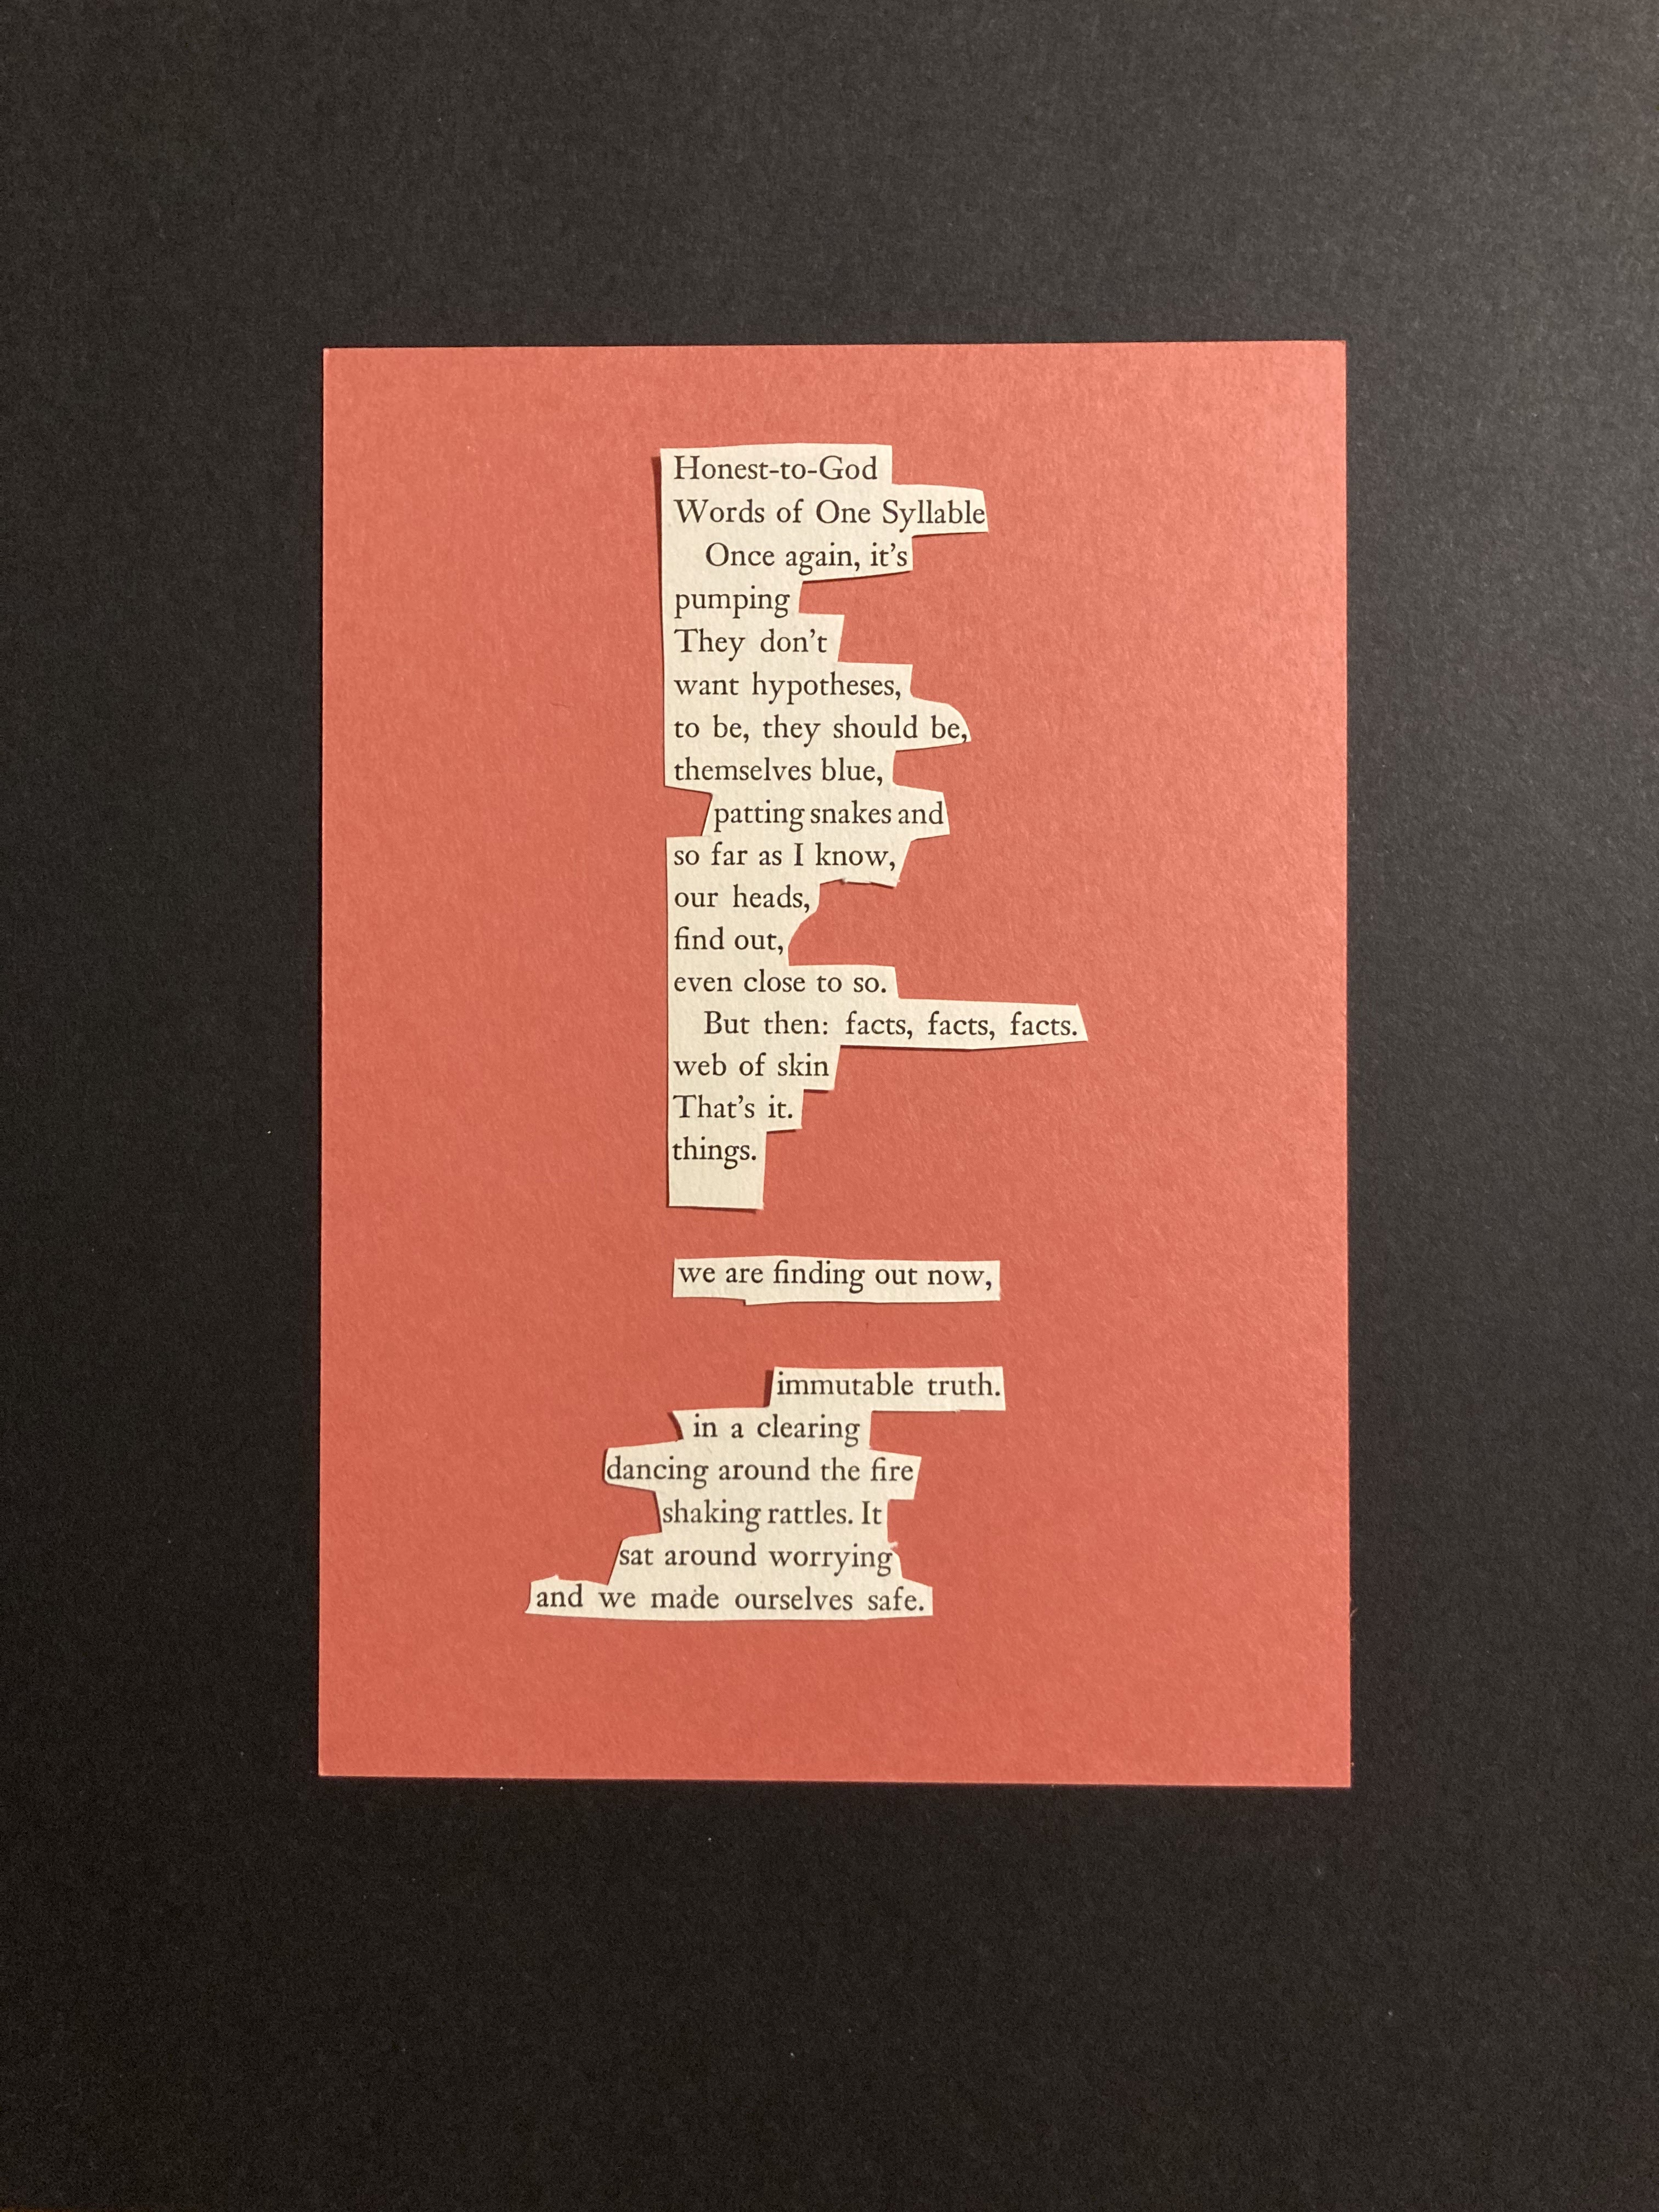 Honest-to-God
Words of One Syllable
Once again, it's
pumping
They don't
want hypotheses,
to be, they should be,
themselves blue,
patting snakes and
so far as I know,
our heads,
find out,
even close to so.
But then: facts, facts, facts.
web of skin
That's it.
things.
we are finding out now,
immutable truth.
in a clearing
dancing around the fire
shaking rattles. It
sat around worrying
and we made ourselves safe.